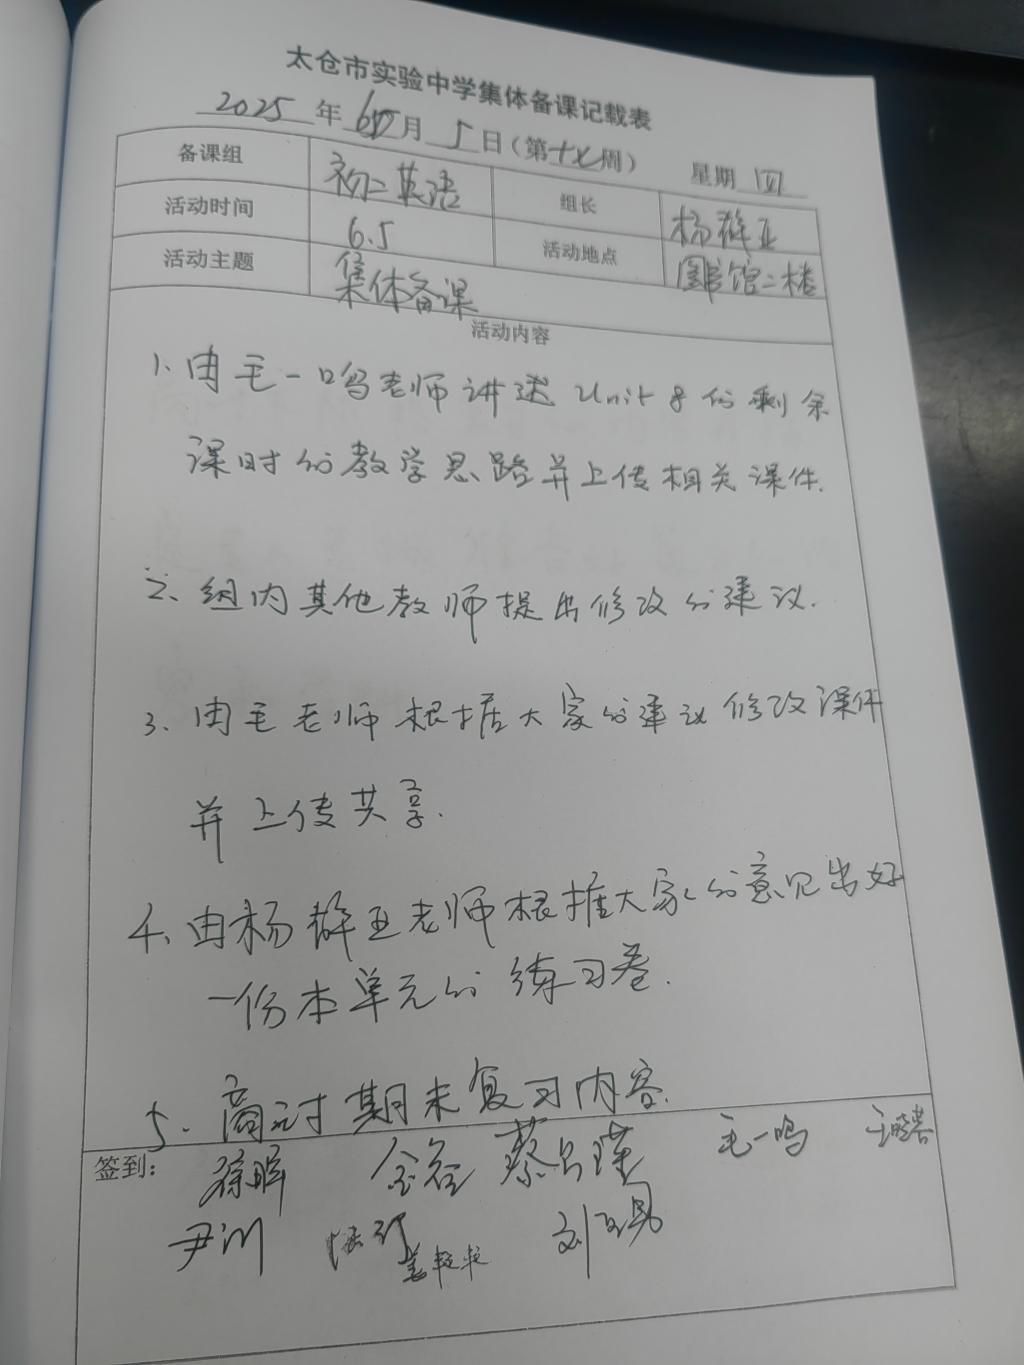 太仓市实验中学集体备课记载表
2025 年 6 月 5 日（第十七周） 星期 四
备课组 初二英语 组长 杨群亚
活动时间 6.5 活动地点 图书馆二楼
活动主题 集体备课
活动内容
1. 由毛一鸣老师讲述 Unit 8 的剩余
课时的教学思路并上传相关课件.
2、组内其他教师提出修改的建议.
3、由毛老师根据大家的建议修改课件
并上传共享.
4、由杨群亚老师根据大家的意见出好
一份本单元的练习卷.
5. 商讨期末复习内容.
签到： 毛一鸣
尹川